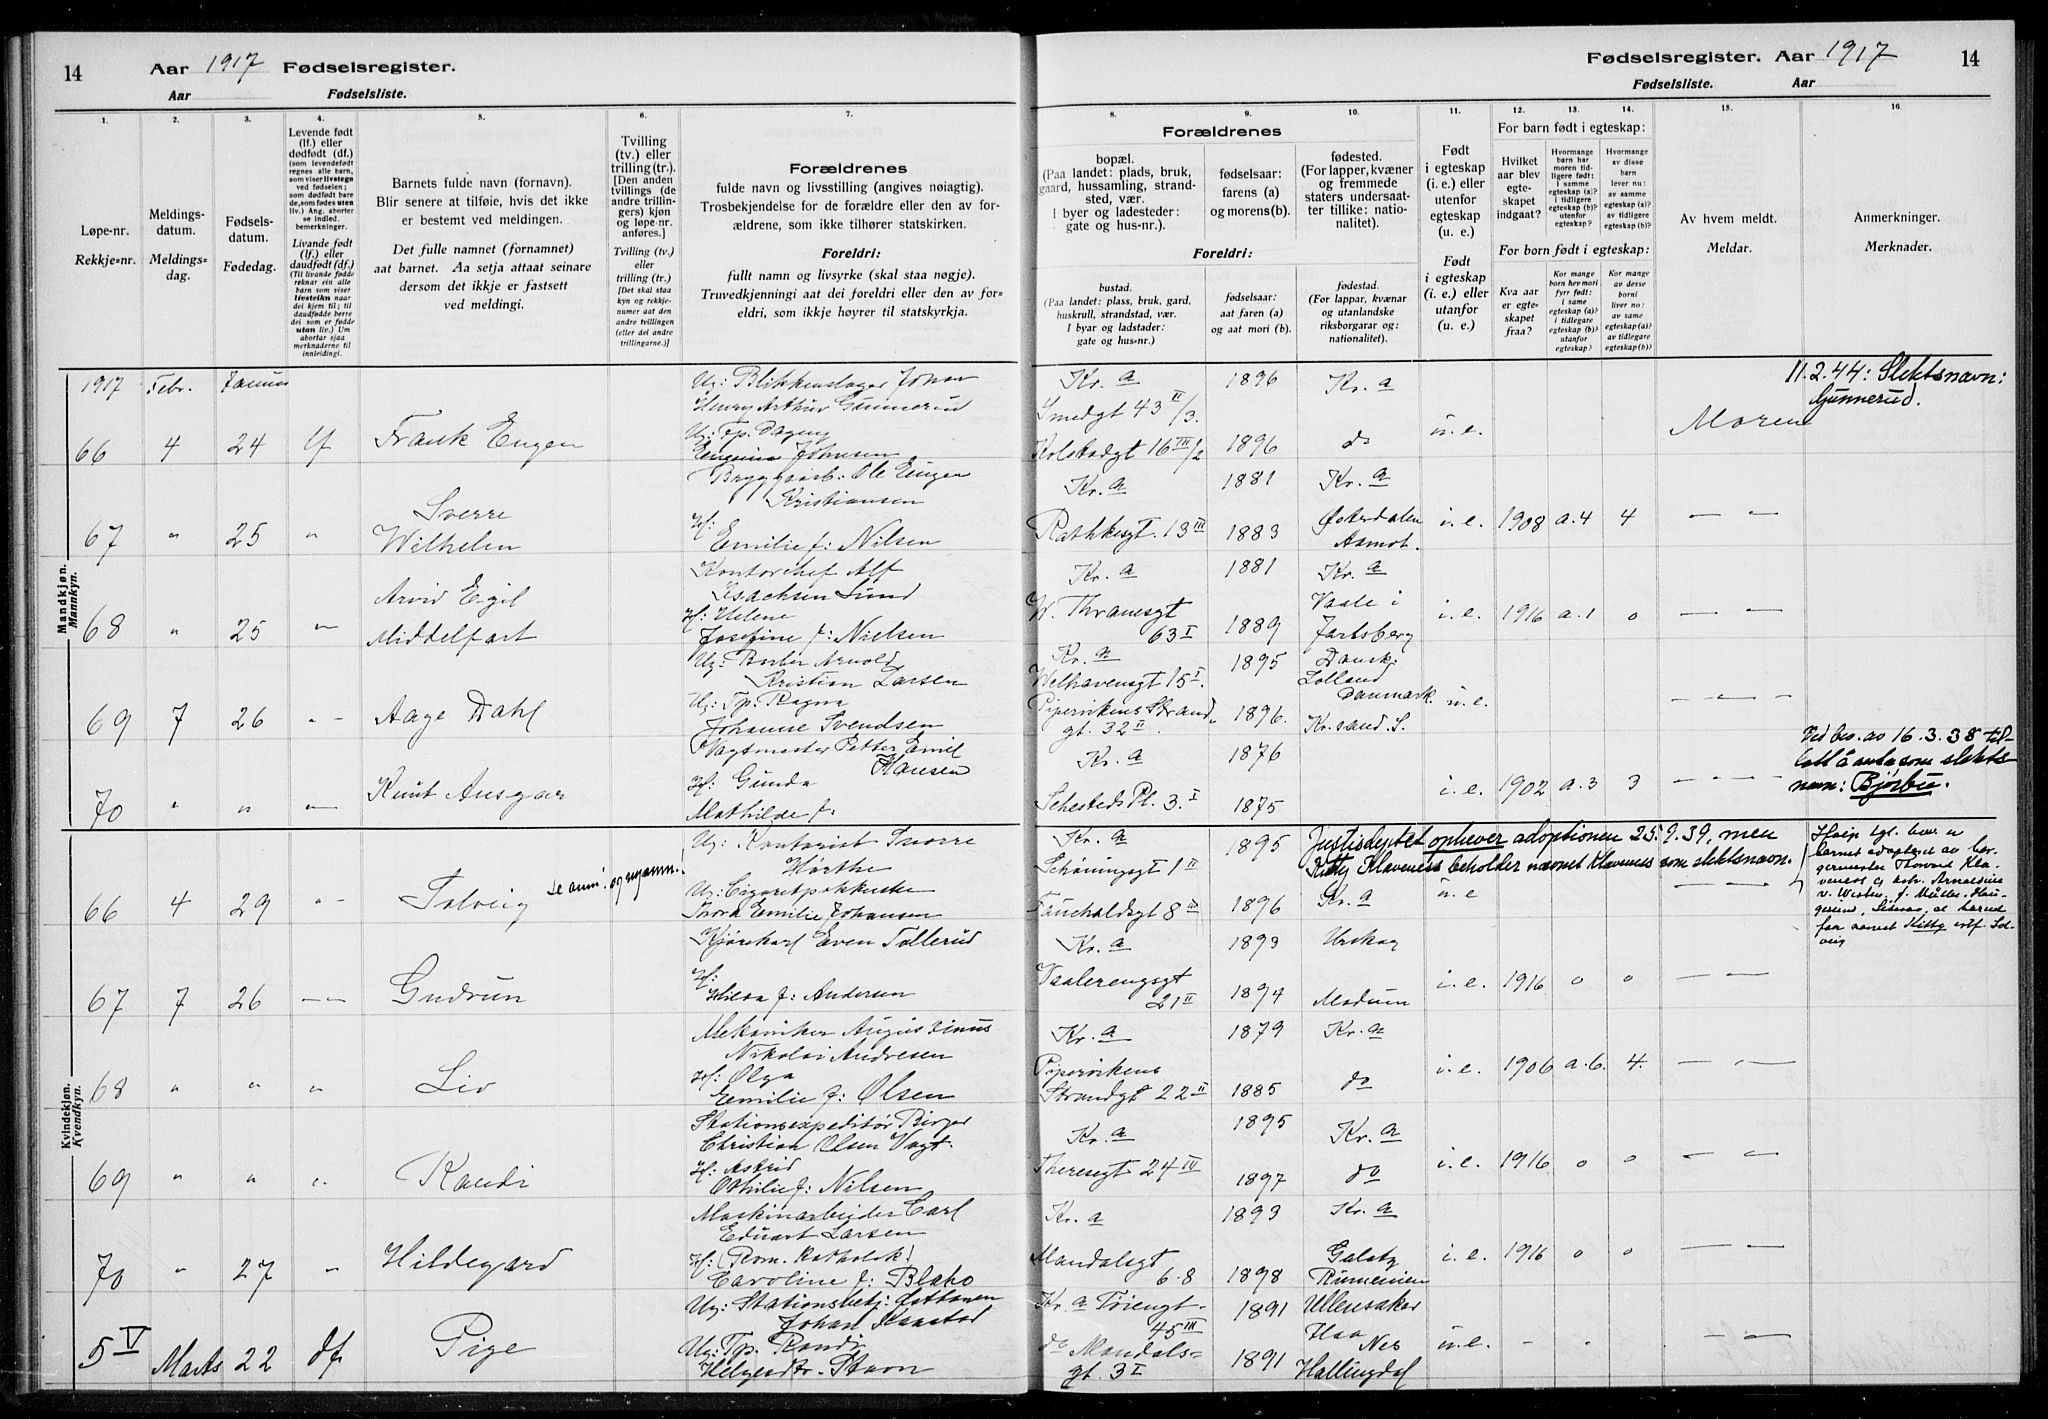 14
Aar 1917 Fødselsregister.
Aar Fødselsliste.
1. 2. 3. 4. 5. 6. 7.
Løpe-nr.
Rekkje-nr.
Meldings-
datum.
Meldings-
dag.
Fødsels-
datum.
Fødedag.
Levende født
(lf.) eller
dødfødt (df.)
(som levendefødt
regnes alle barn,
som viser livstegn
ved fødselen;
som dødfødt barn
de, som fødes uten
liv.) Ang. aborter
se indled.
bemerkninger.
Livande født
(lf.) eller
daudfødt (df.)
(Til livande fødde
reknar ein alle
barn som viser
livsteikn naar
dei kjem til; til
daudfødde børre
dei som er fødde
utan liv.) Um
abortar sjaa
merknaderne til
innleidingi.
Barnets fulde navn (fornavn).
Blir senere at tilføie, hvis det ikke
er bestemt ved meldingen.
Det fulle namnet (fornamnet)
aat barnet. Aa setja attaat seinare
dersom det ikkje er fastsett
ved meldingi.
Tvilling
(tv.) eller
trilling (tr.).
[Den anden
tvillings (de
andre trillin-
gers) kjøn
og løpe-nr.
anføres.]
Tvilling (tv.)
eller
trilling (tr.)
[Det skal staa
kyn og rekkje-
numer aat den
andre tvillingen
(eller dei andre
trillingarne.)]
Forældrenes
fulde navn og livsstilling (angives nøiagtig).
Trosbekjendelse for de forældre eller den av for-
ældrene, som ikke tilhører statskirken.
Foreldri:
fullt namn og livsyrke (skal staa nøgje).
Truvedkjenningi aat dei foreldri eller den av for-
eldri, som ikkje høyrer til statskyrkja.
Mandkjøn.
Mannkyn.
1917 Febr. Januar
66 4 24 lf Frank Eugen
Ug: Blikkenslager Johan
Henry Arthur Gunnerud
Ug: Tp. Dagny
Eugenie Johnsen
67 " 25 " Sverre
Wilhelm
Bryggearb: Ole Eugen
Kristiansen
Hf:
Emilie f: Nilsen
68 " 25 " Arvid Egil
Middelfart
Kontorchef Alf
Isachsen Lund
Hf: Helene
Josefine f: Nielsen
69 7 26 " Aage Dahl
Ug: Barber Arnold
Kristian Larsen
Ug: Tp. Ragna
Johanne Svendsen
70 " " " Knut Ansgar
Vagtmester Petter Emil
Hansen
Hf: Gunda
Mathilde f:
Kvindekjøn.
Kvendkyn.
66 4 29 " Solveig
Ug: Kontorist Snorre
Ug: Cigaretpakkerske
Thora Emilie Johansen
67 7 26 " Gudrun
Kjørekarl Even Tollerud
Hf:
Hilda f: Andersen
68 " " " Liv
Mekaniker Augustinus
Nikolai Andresen
Hf: Olga
Emilie f: Olsen
69 " " " Randi
Stationsexpeditør Birger
Christian Olsen Vagt.
Hf: Astrid
Othilie f: Nilsen
70 " 27 " Hildegard
Maskinarbeider Carl
Eduart Larsen
Hf: (Rom. Katholsk)
Caroline f: Blaho
5 V Marts 22 df Pige
Ug: Stationsbetj:
Johan
Ug: Tp. Randi
14
Fødselsregister. Aar 1917
Fødselsliste. Aar
8. 9. 10. 11. 12. 13. 14. 15. 16.
Forældrenes
bopæl.
(Paa landet: plads, bruk,
gaard, hussamling, strand-
sted, vær.
I byer og ladesteder:
gate og hus-nr.).
fødselsaar:
farens (a)
og morens (b).
fødested.
(For lapper, kvæner
og fremmede
staters undersaat-
ter tillike: natio-
nalitet).
Foreldri:
bustad.
(Paa landet: plass, bruk, gard,
huskrull, strandstad, vær.
I byar og ladstader:
gate og hus-nr.)
fødselsaar:
aat faren (a)
og aat mori (b).
fødestad.
(For lappar, kvænar
og utanlandske
riksborgarar og:
nationalitet).
Født
i egteskap
(i. e.) eller
utenfor
egteskap
(u. e.)
Født
i egteskap
(i. e.) eller
utanfor
(u. e.).
For barn født i egteskap:
Hvilket
aar blev
egte-
skapet
indgaat?
Hvormange
barn har
moren tid-
ligere født:
i samme
egteskap (a)?
i tidligere
egteskap (b)?
utenfor
egteskap?
Hvormange
av disse
barn
lever nu:
av samme
egteskap (a)?
av tidligere
egteskap (b)?
For born født i egteskap:
Kva aar
er egte-
skapet
fraa?
Kor mange
born hev mori
fyrr født:
i same
egteskap (a)?
i tidlegare
egteskap (b)?
utanfor
egteskap?
Kor mange
av desse
borni
liver no:
av same
egteskap (a)?
av tidlegare
egteskap (b)?
Av hvem meldt.
Meldar.
Anmerkninger.
Merknader.
Kr. a 1896 Kr. a
Smedgt 43 II/3.
Kolstadgt 16 III/2 1896 do u.e. Moren
11.2.44: Slektsnavn:
Gunnerud.
Kr. a 1881 Kr. a
Rathkesgt. 13 III 1883 Østerdalen
Aamot. i.e. 1908 a.4 4 — " —
Kr. a 1881 Kr. a
W. Thranesgt
63 I 1889 Vaale i
Jarlsberg i.e. 1916 a.1 0 — " —
Kr. a 1895 Dansk:
Welhavensgt 15 I Lolland
Danmark.
Pipervikens Strand-
gt. 32 II. 1896. Kr.sand. S. u.e. — " —
Kr. a 1876
Sehesteds Pl. 3. I 1875 i.e. 1902 a.3 3 — " —
Ved bev. av 16.3.38 til-
latt å anta som slekts-
navn: Bjørbu.
Kr. a 1895 Justisdeptet ophever adoptionen 25.9.39, men
Schøningsgt 1 II Kitty Klaveness beholder navnet Klaveness som slektsnavn.
Fauchaldsgt 8 III 1896 Kr. a u.e — " —
barnet adopteret av
Kitty istf. Sol-
veig
Kr. a 1893 Urskog
Vaalerengsgt
21 II 1894 Modum i.e. 1916 0 0 — " —
Kr. a 1879 Kr. a
Pipervikens
Strandgt 22 II 1885 do i.e. 1906 a.6. 4. — " —
Kr. a 1895 Kr. a
Theresegt 24 III 1897 do i.e. 1916 0 0 — " —
Kr. a 1893 Kr. a
Mandalsgt
6-8 1898 Galatz
Rumenien i.e. 1916 0 0 — " —
Kr. a Tøiengt.
45 III 1891 Ullensaker
do Mandals-
gt. 3 I 1891 Nes
Hallingdal u.e. - - -